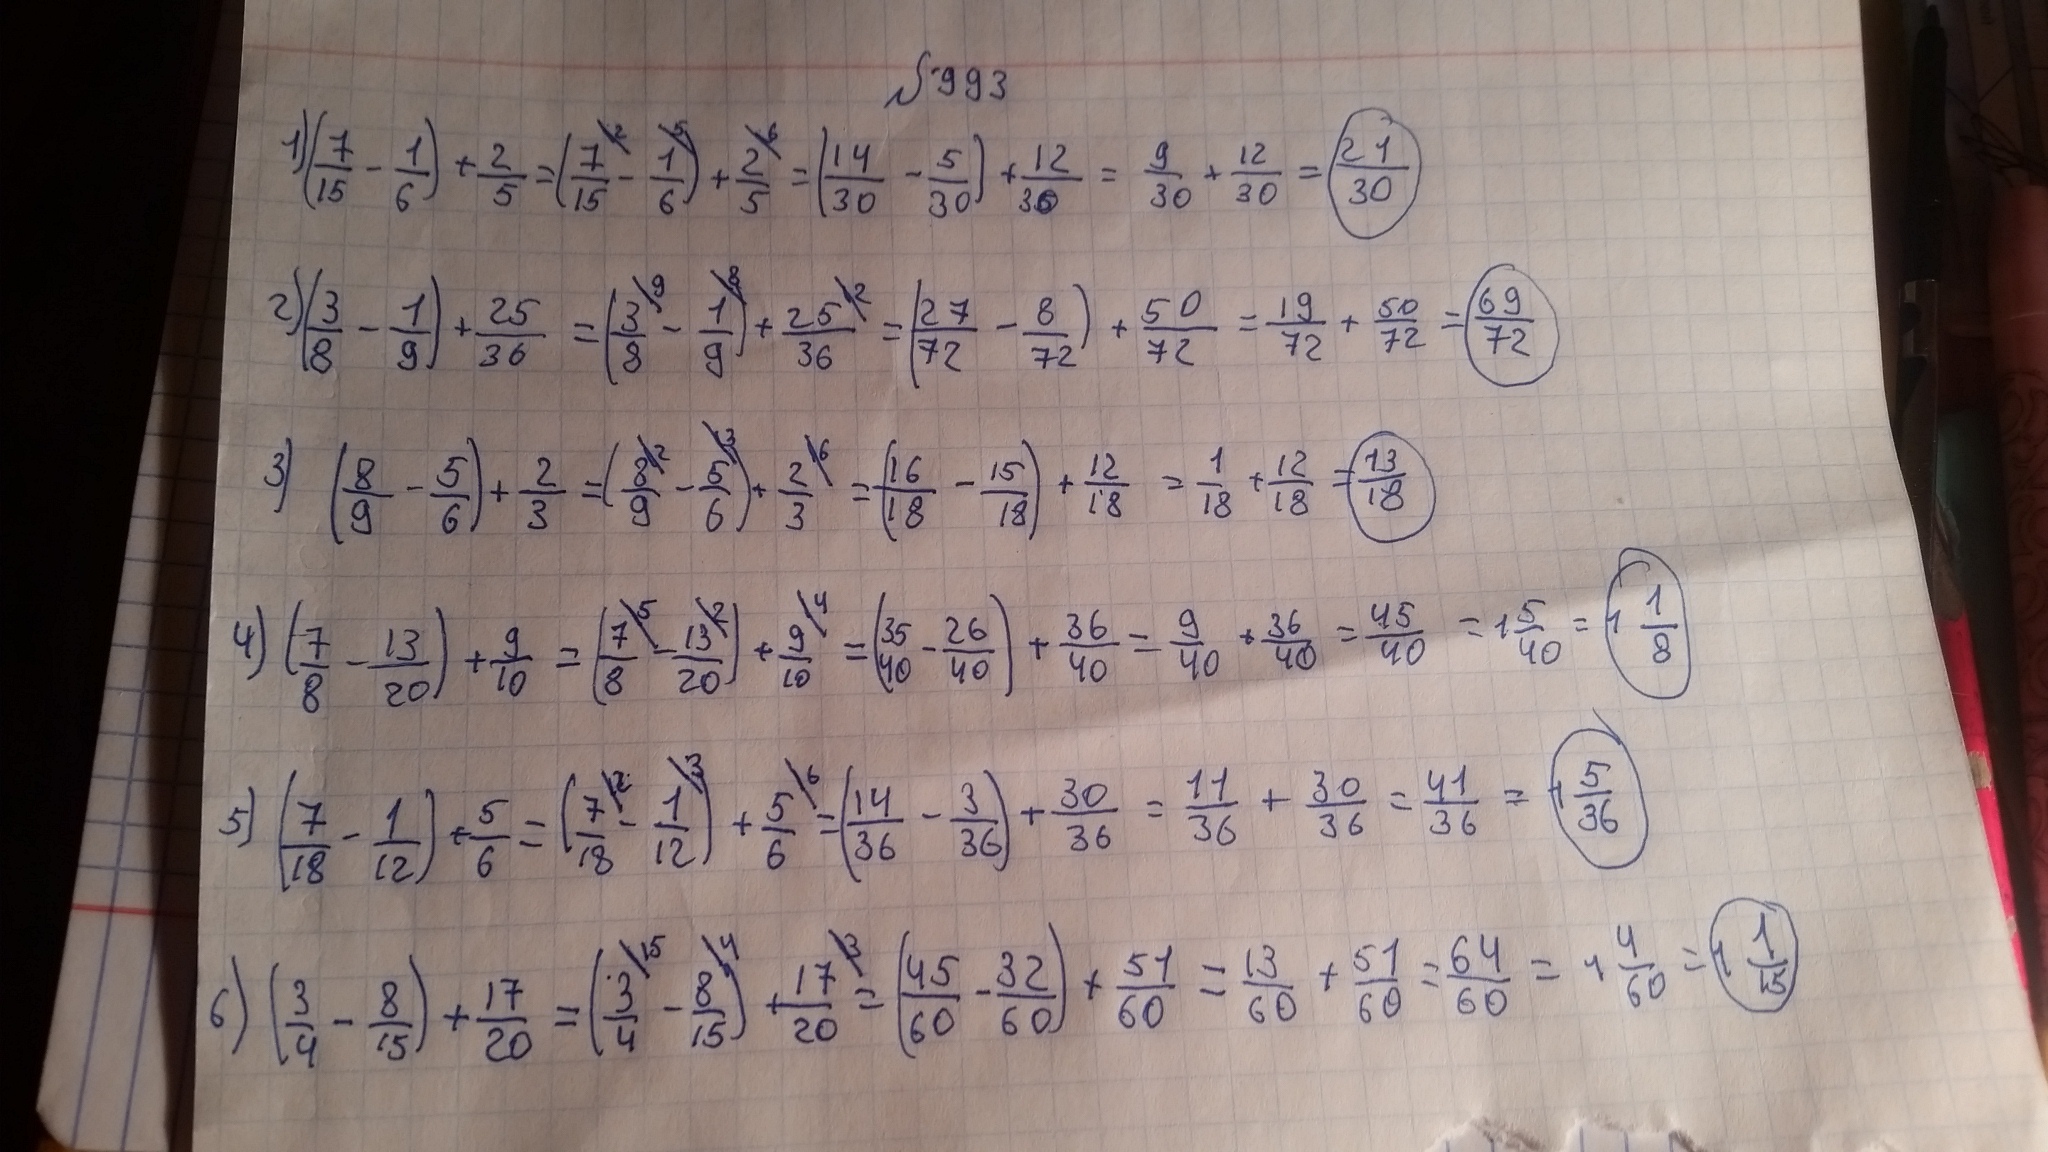 №993
1) (7/15 - 1/6) + 2/5 = (7/15 \2 - 1/6 \5) + 2/5 \6 = (14/30 - 5/30) + 12/30 = 9/30 + 12/30 = 21/30
2) (3/8 - 1/9) + 25/36 = (3/8 \9 - 1/9 \8) + 25/36 \2 = (27/72 - 8/72) + 50/72 = 19/72 + 50/72 = 69/72
3) (8/9 - 5/6) + 2/3 = (8/9 \2 - 5/6 \3) + 2/3 \6 = (16/18 - 15/18) + 12/18 = 1/18 + 12/18 = 13/18
4) (7/8 - 13/20) + 9/10 = (7/8 \5 - 13/20 \2) + 9/10 \4 = (35/40 - 26/40) + 36/40 = 9/40 + 36/40 = 45/40 = 1 5/40 = 1 1/8
5) (7/18 - 1/12) + 5/6 = (7/18 \2 - 1/12 \3) + 5/6 \6 = (14/36 - 3/36) + 30/36 = 11/36 + 30/36 = 41/36 = 1 5/36
6) (3/4 - 8/15) + 17/20 = (3/4 \15 - 8/15 \4) + 17/20 \3 = (45/60 - 32/60) + 51/60 = 13/60 + 51/60 = 64/60 = 1 4/60 = 1 1/15